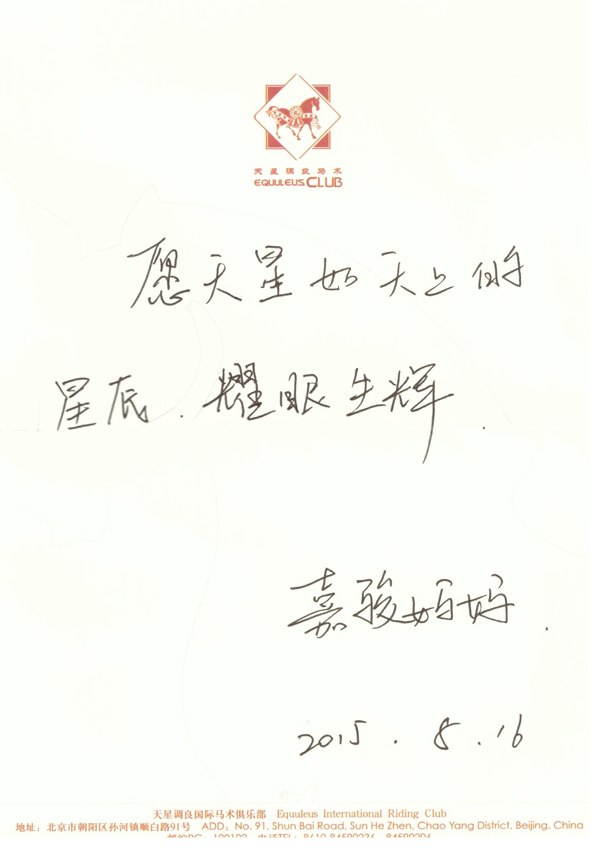 天星调良马术
EQUULEUS CLUB
愿天星如天上的
星辰.耀眼生辉.
嘉骏妈妈.
2015.8.16
天星调良国际马术俱乐部 Equuleus International Riding Club
地址:北京市朝阳区孙河镇顺白路91号 ADD: No. 91, Shun Bai Road, Sun He Zhen, Chao Yang District, Beijing, China